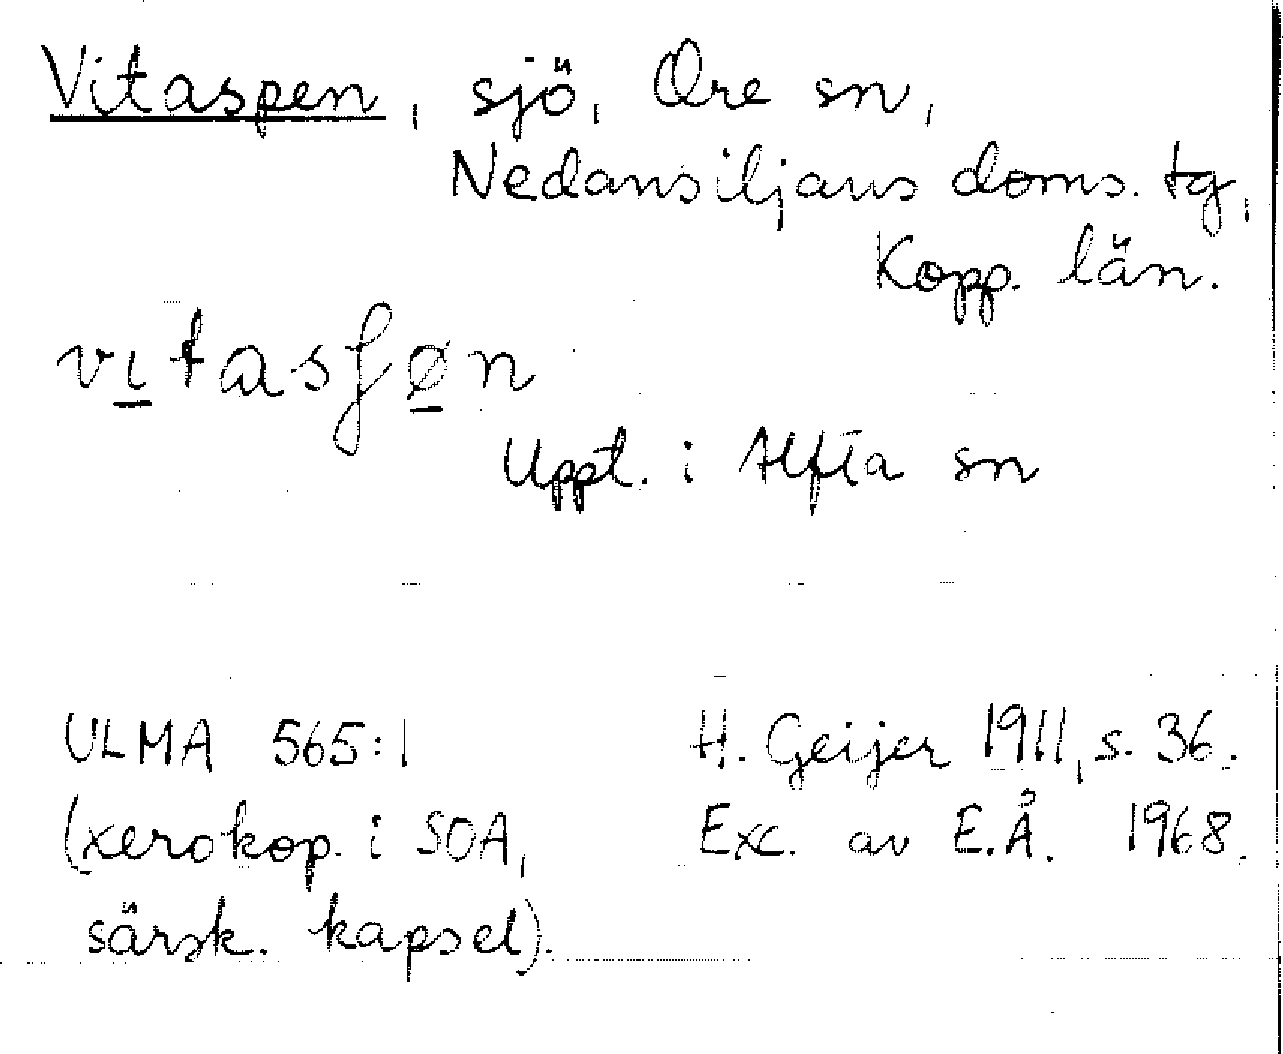 Vitaspen, sjö, Ore sn,
Nedansiljans doms. tg,
Kopp. län.
vıtasʃøn
Uppt. i Alfta sn
ULMA 565:1
(xerokop. i SOA,
särsk. kapsel).
H. Geijer 1911, s. 36.
Exc. av E.Å. 1968.